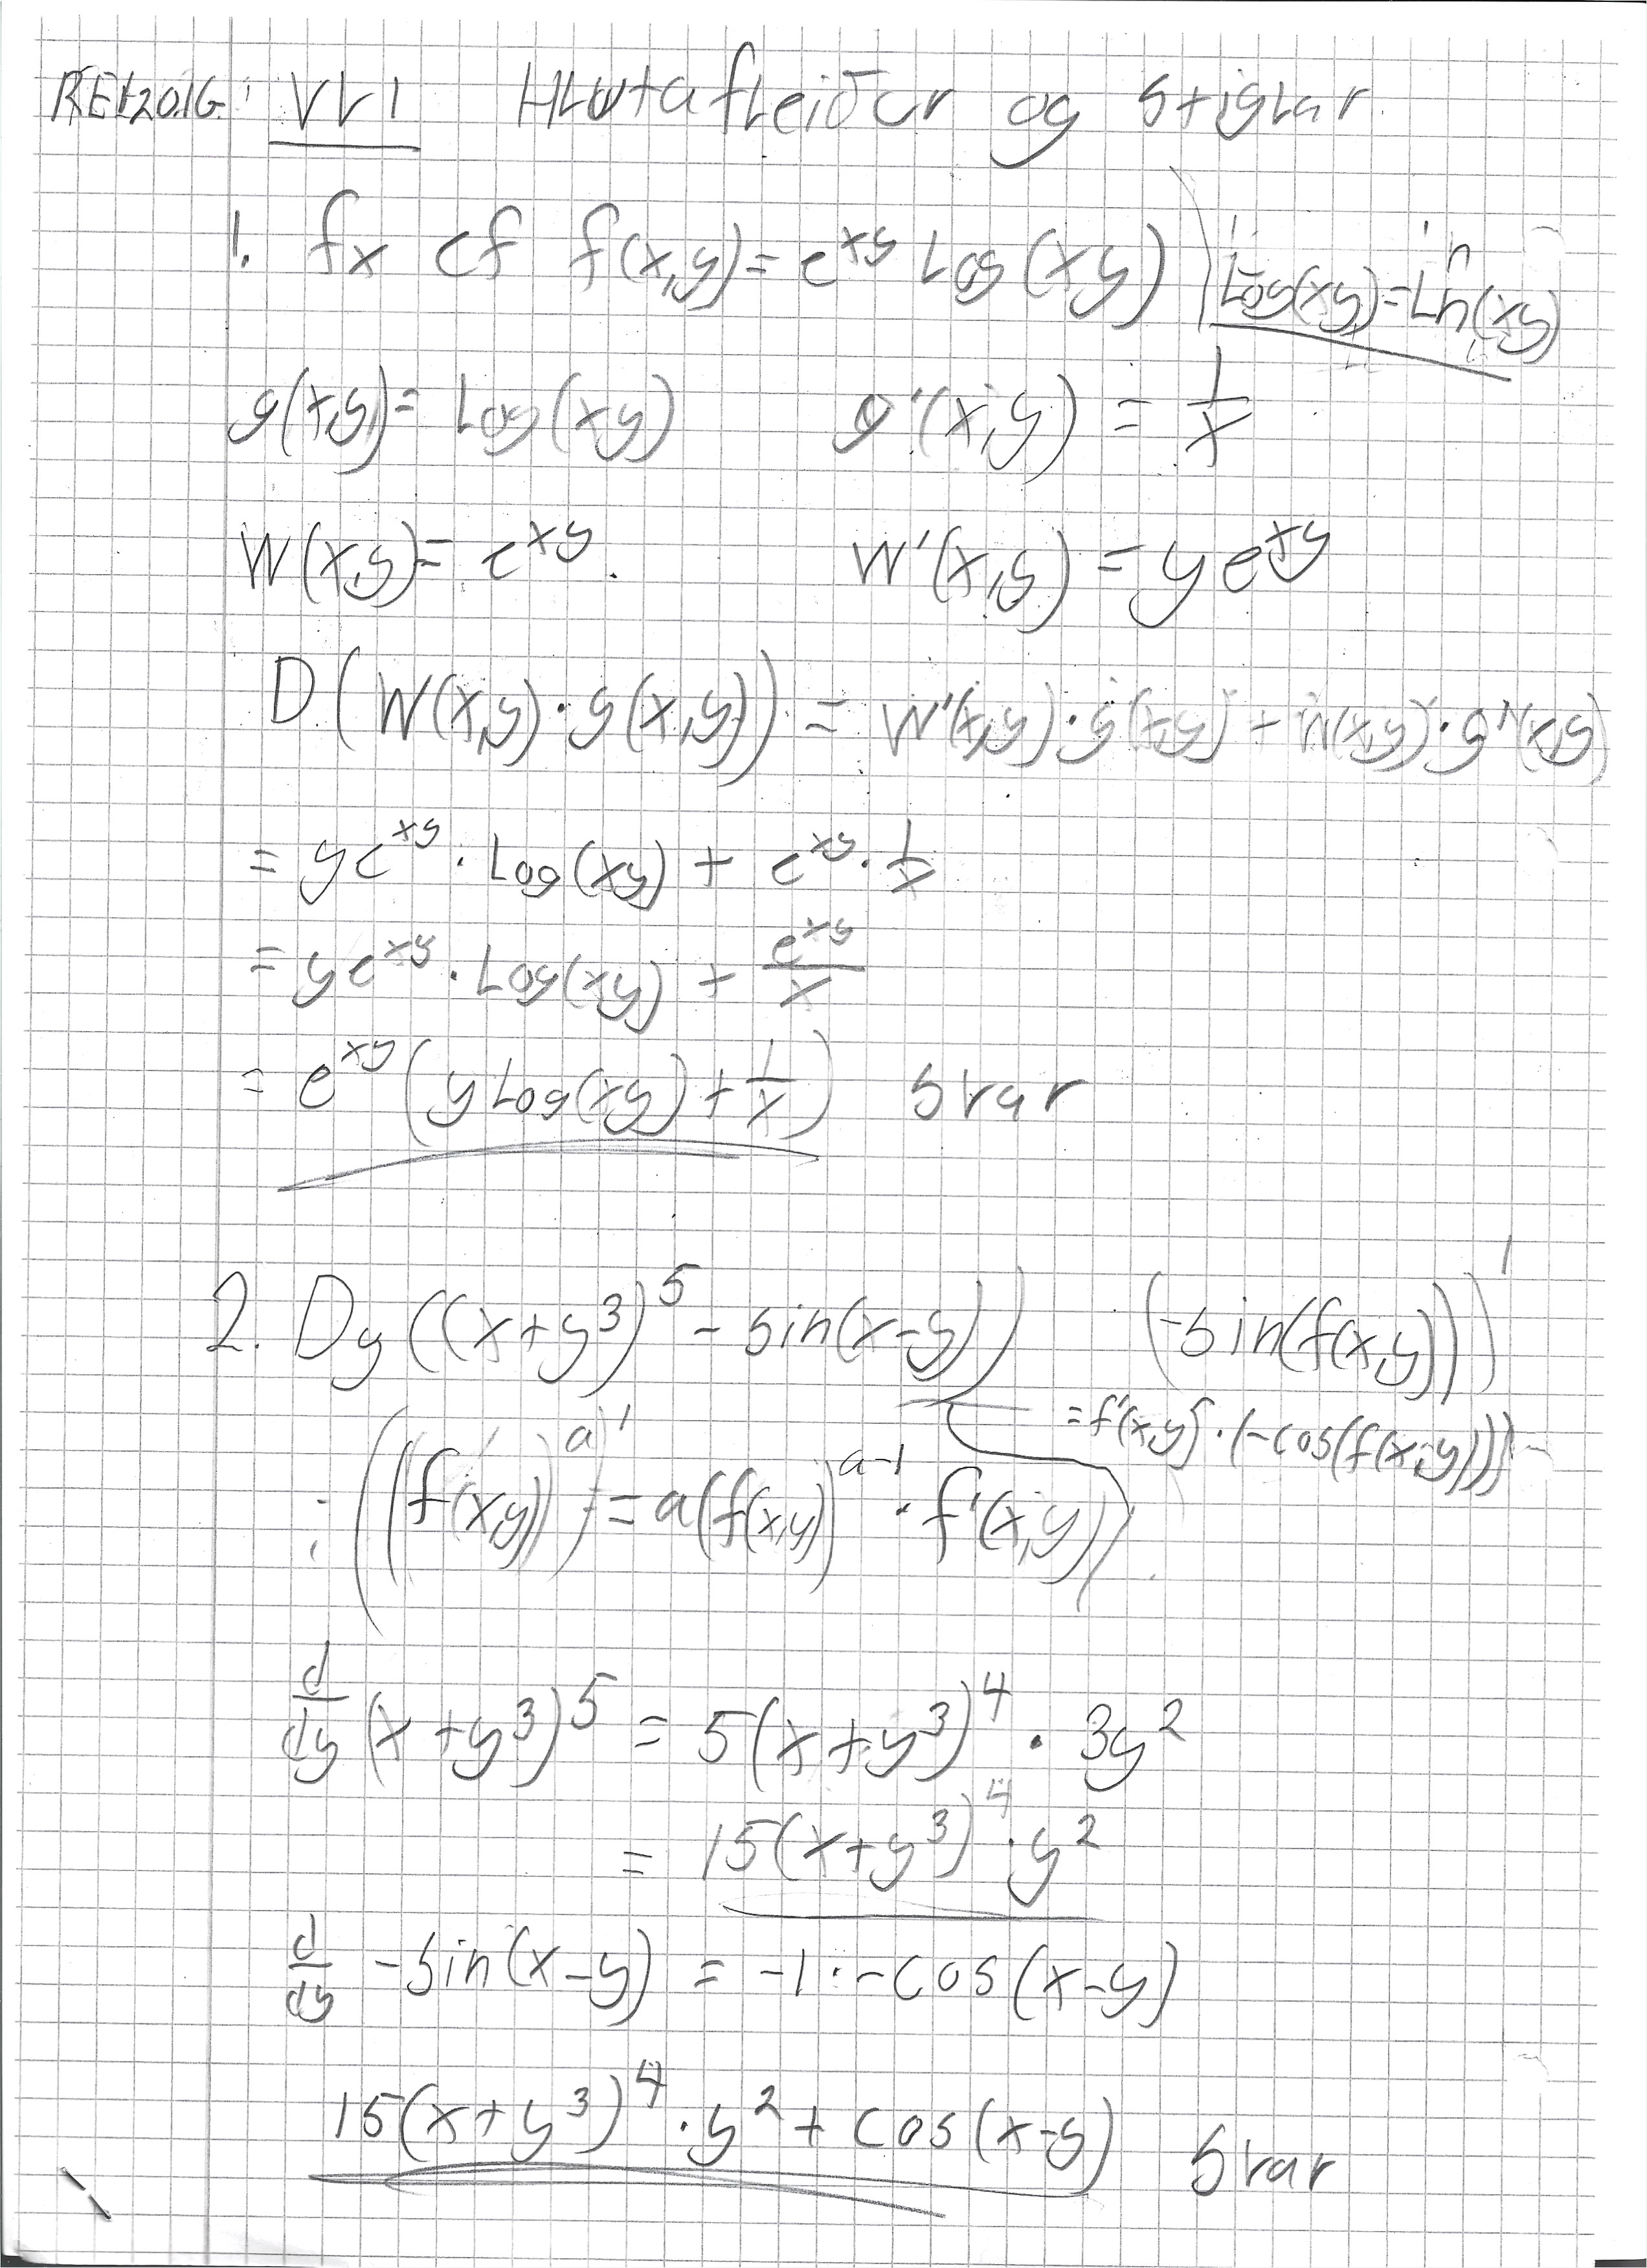 REI201G: VV1 Hlutafleiður og stiglar
1. fx ef f(x,y) = e^xy Log(xy) | Log(xy) = Ln(xy)
g(x,y) = Log(xy) g'(x,y) = 1/x
W(x,y) = e^xy. W'(x,y) = y e^xy
D(W(x,y)·g(x,y)) = W'(x,y)·g(x,y) + W(x,y)·g'(x,y)
= ye^xy · Log(xy) + e^xy · 1/x
= ye^xy · Log(xy) + e^xy/x
= e^xy (y Log(xy) + 1/x) Svar
2. Dy((x+y^3)^5 - sin(x-y)) (-sin(f(x,y)))'
= f'(x,y) · (-cos(f(x,y)))
: ((f(x,y))^a)' = a(f(x,y))^a-1 · f'(x,y))
d/dy (x+y^3)^5 = 5(x+y^3)^4 · 3y^2
= 15(x+y^3)^4 · y^2
d/dy -sin(x-y) = -1·-cos(x-y)
15(x+y^3)^4 · y^2 + cos(x-y) Svar